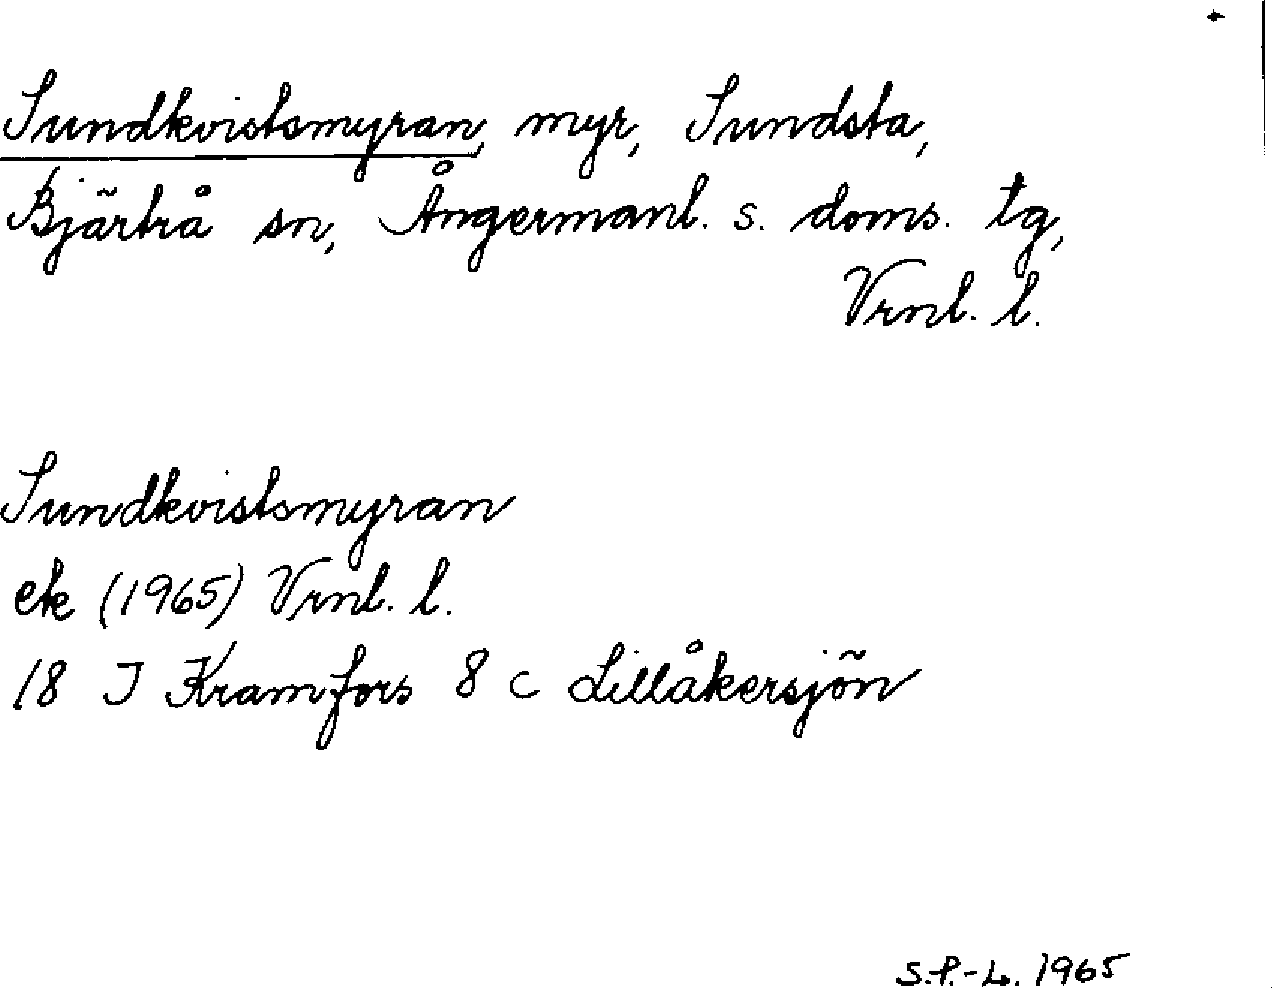 Sundkvistsmyran, myr, Sundsta,
Bjärtrå sn, Ångermanl. s. doms. tg,
Vrnl. l.
Sundkvistsmyran
ek (1965) Vrnl. l.
18 J Kramfors 8 c Lillåkersjön
S.P.-L. 1965